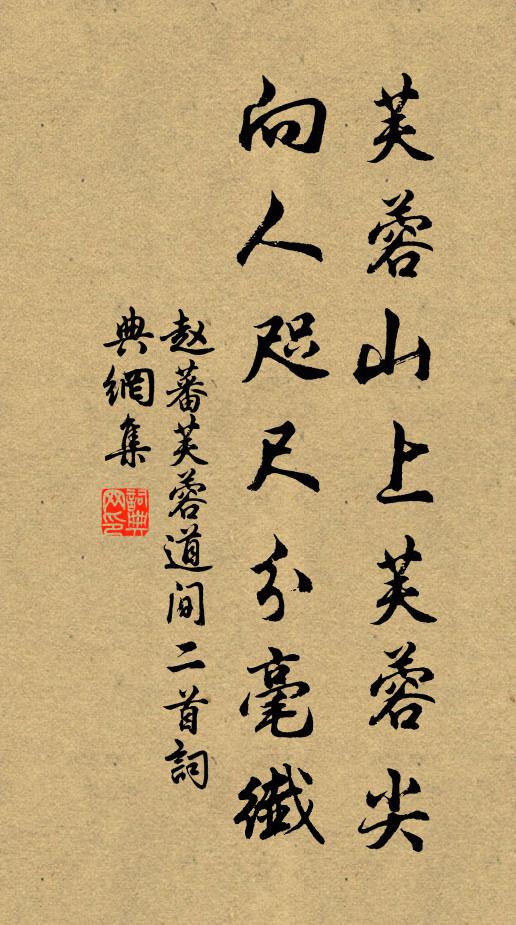 芙蓉山上芙蓉尖
向人咫尺分毫纖
赵蕃芙蓉道间二首詞
典網集
詞典网印